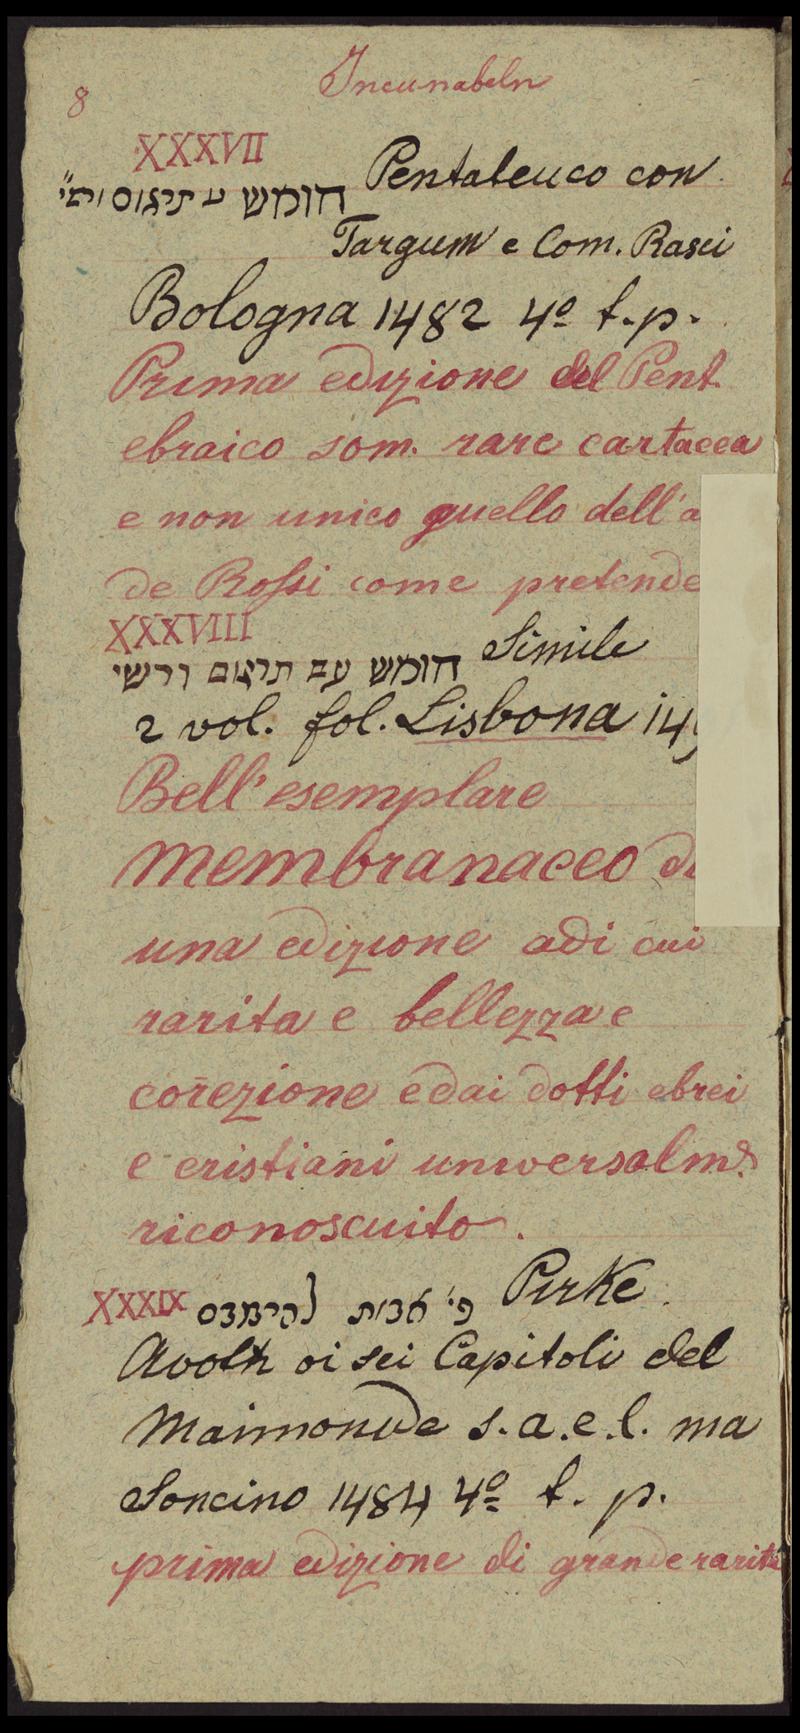 8 Incunabeln
XXXVII
חומש ע תרגום ורש״י Pentateuco con
Targum e Com. Rasci
Bologna 1482 4º t.p.
Prima edizione del Pent.
ebraico som. rare cartacea
e non unico quello dell'a
de Rossi come pretende
XXXVIII
חומש עם תרגום ורשי Simile
2 vol. fol. Lisbona 149
Bell'esemplare
membranaceo di
una edizione adi cui
rarita e bellezza e
corezione edai dotti ebrei
e cristiani universalm.
riconoscuito.
XXXIX פי' אבות להרמבם Pirke
Avoth oi sei Capitoli del
Maimonide s.a.e.l. ma
Soncino 1484 4º t. p.
prima edizione di grande rarità